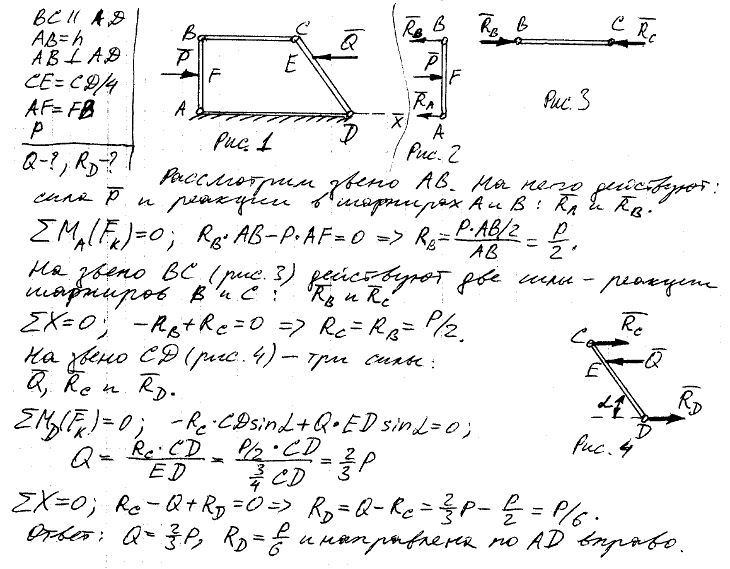 BC || AD
AB=h
AB⊥AD
CE=CD/4
AF=FB
P
Q-?, R_D-?
B C Q̄
P̄ F E
A D x
Рис. 1
R̄_B B
P̄ F
R̄_A
A
Рис. 2
R̄_B B C R̄_C
Рис. 3
Рассмотрим звено AB. На него действуют:
сила P̄ и реакции в шарнирах A и B: R̄_A и R̄_B.
ΣM_A(F̄_K)=0; R_B·AB-P·AF=0 => R_B=(P·AB/2)/AB=P/2.
На звено BC (рис. 3) действуют две силы – реакции
шарниров B и C: R̄_B и R̄_C
ΣX=0; -R_B+R_C=0 => R_C=R_B=P/2.
На звено CD (рис. 4) – три силы:
Q̄, R̄_C и R̄_D.
ΣM_D(F̄_K)=0; -R_C·CD sinα+Q·ED sinα=0;
Q=(R_C·CD)/ED=(P/2·CD)/(3/4 CD)=2/3 P
ΣX=0; R_C-Q+R_D=0 => R_D=Q-R_C=2/3 P-P/2=P/6.
Ответ: Q=2/3 P, R_D=P/6 и направлена по AD вправо.
C R̄_C
E Q̄
α R̄_D
D
Рис. 4